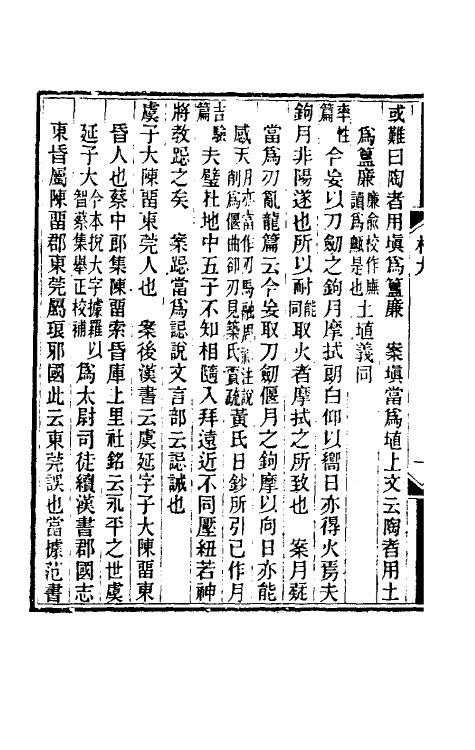 或難曰陶者用塡爲簠廉　案塡當爲埴上文云陶者用土
爲簠廉廉俞校作廡讀爲甒是也土埴義同
率性篇今妄以刀劒之鉤月摩拭朗白仰以嚮日亦得火焉夫
鉤月非陽遂也所以耐能同取火者摩拭之所致也　案月疑
當爲刃亂龍篇云今妄取刀劒偃月之鉤摩以向日亦能
感天月亦當作刃馬融周禮注說削爲偃曲卻刃見築氏賈疏黃氏日鈔所引已作月
吉驗篇夫璧杜地中五子不知相隨入拜遠近不同壓紐若神
將教跽之矣　案跽當爲誋說文言部云誋誡也
虞子大陳畱東莞人也　案後漢書云虞延字子大陳畱東
昏人也蔡中郎集陳畱索昏庫上里社銘云永平之世虞
延子大今本挩大字據羅以智蔡集舉正校補爲太尉司徒續漢書郡國志
東昏屬陳畱郡東莞屬琅邪國此云東莞誤也當據范書